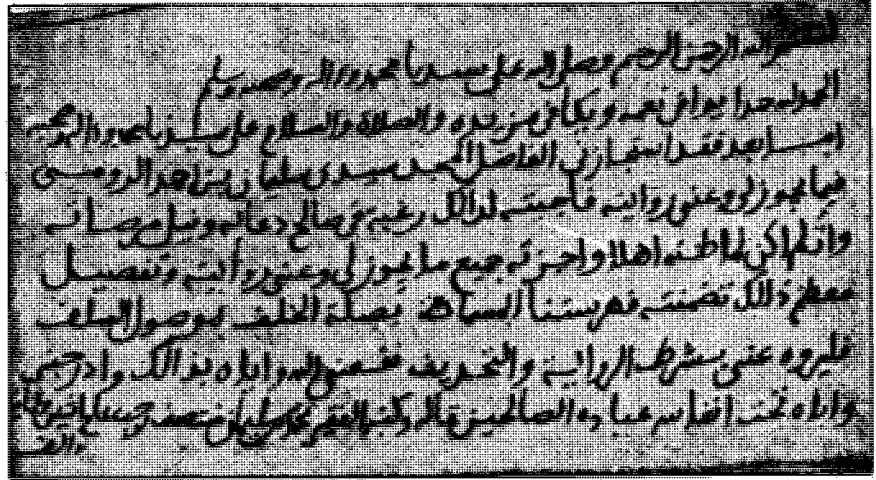 بسم الله الرحمن الرحيم وصلى الله على سيدنا محمد وءاله وصحبه وسلم
الحمد لله حمدا يوافي نعمه ويكافئ مزيده والصلاة والسلام على سيدنا محمد وءاله وصحبه
اما بعد فقد استجازني الفاضل المجيد سيدي سليمان بن احمد
فيما يجوز لي وعني روايته فاجبته لذالك رغبة في صالح دعائه ونيل مرضاته
وان لم اكن لما ظنه اهلا واجزته جميع ما يجوز لي وعني روايته وتفصيل
معظم ذالك تضمنته فهرستنا المسماة بصلة الخلف بموصول السلف
فليروه عني بشرط الرواية والتحديف نفعني الله واياه بذالك وادرجني
واياه تحت انفاس عباده الصالحين قاله وكتبه الفقير محمد بن سليمان منتصف
والف